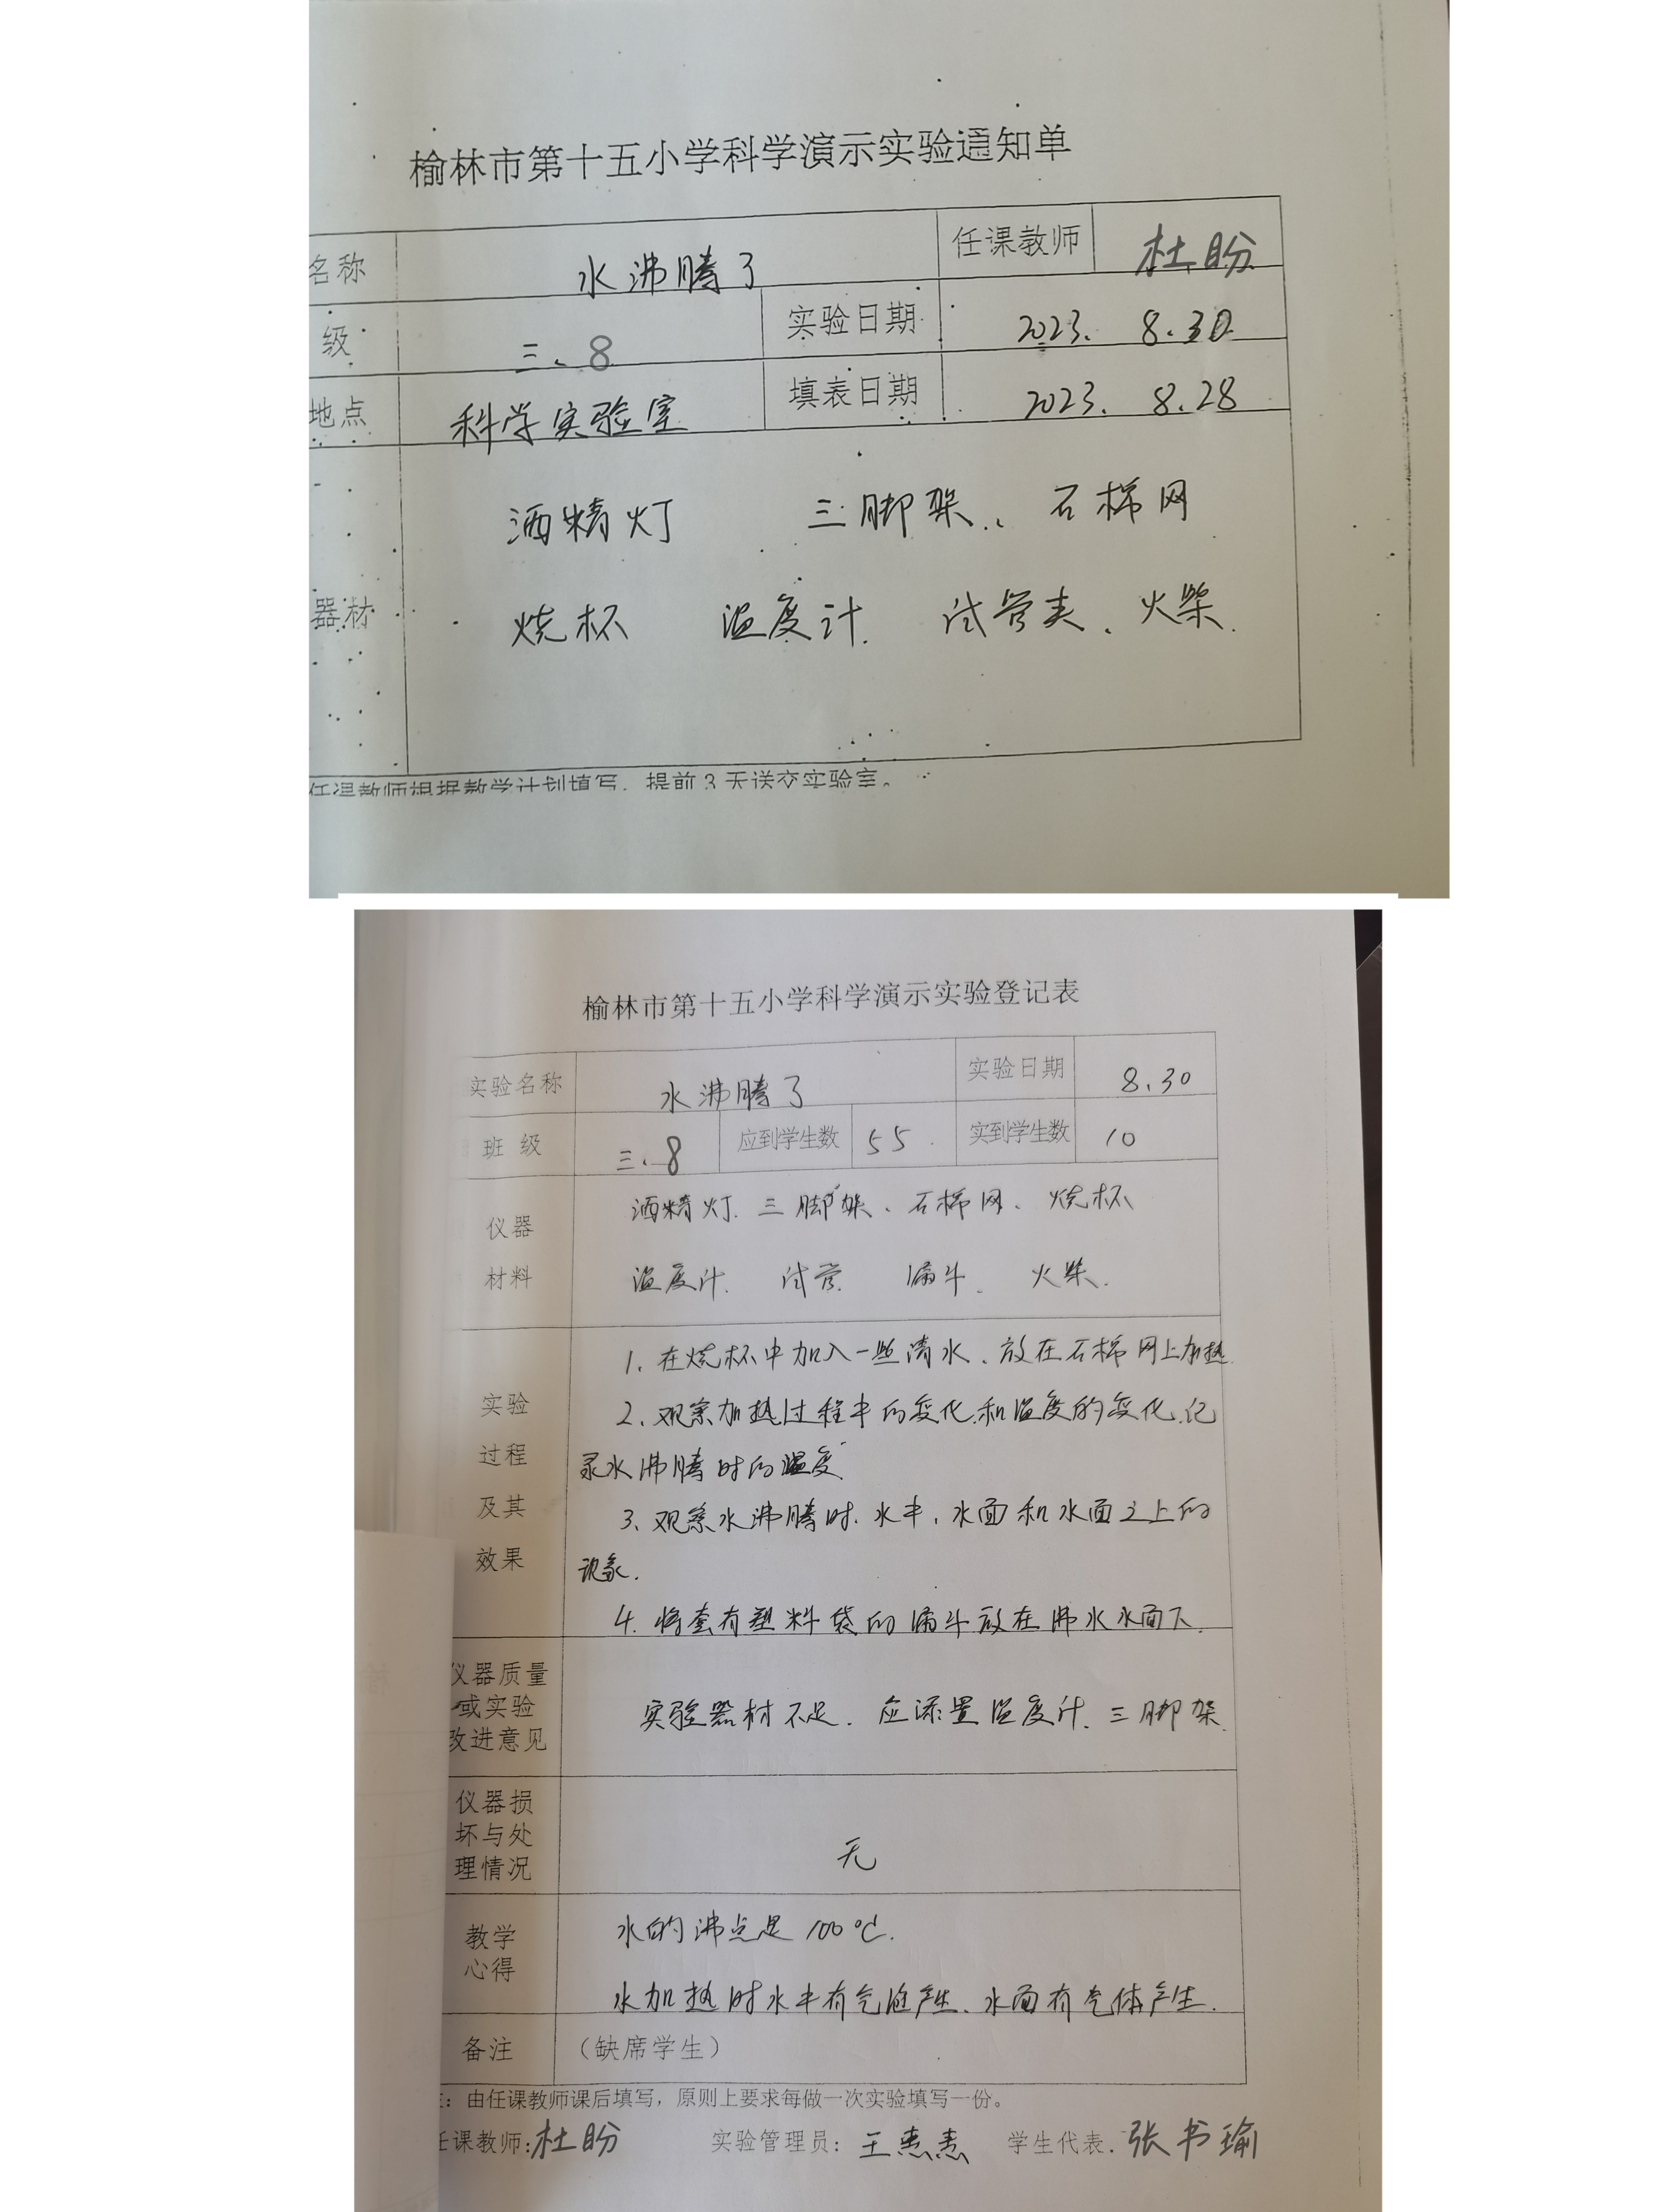 榆林市第十五小学科学演示实验通知单
名称 水沸腾了 任课教师 杜盼
级 三、8 实验日期 2023. 8.30
地点 科学实验室 填表日期 2023. 8.28
酒精灯 三脚架、石棉网
器材 烧杯 温度计 试管夹、火柴.
任课教师根据教学计划填写，提前3天送交实验室。
榆林市第十五小学科学演示实验登记表
实验名称 水沸腾了 实验日期 8.30
班 级 三、8 应到学生数 55 实到学生数 10
仪器 酒精灯、三脚架、石棉网、烧杯
材料 温度计、试管 漏斗、火柴.
1、在烧杯中加入一些清水、放在石棉网上加热
实验 2、观察加热过程中的变化和温度的变化、记
过程 录水沸腾时的温度
及其 3、观察水沸腾时、水中、水面和水面之上的
效果 现象.
4. 将套有塑料袋的漏斗放在沸水水面下.
仪器质量
或实验 实验器材不足. 应添置温度计、三脚架
改进意见
仪器损
坏与处
理情况 无
教学 水的沸点是100℃.
心得 水加热时水中有气泡产生、水面有气体产生.
备注 （缺席学生）
注：由任课教师课后填写，原则上要求每做一次实验填写一份。
任课教师：杜盼 实验管理员：王 学生代表. 张书瑜